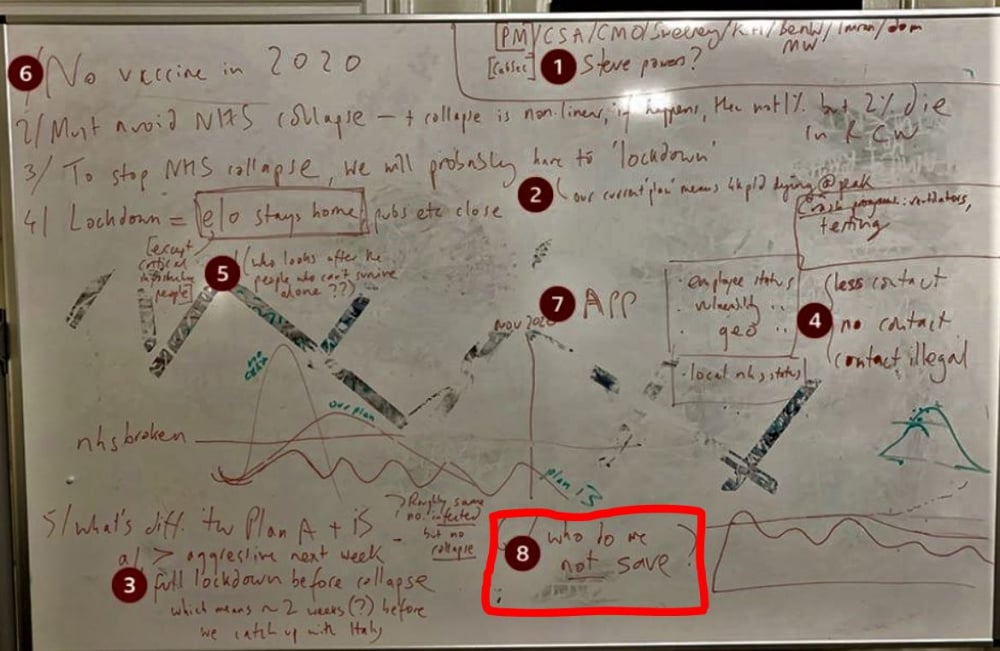 PM/CSA/CMO/Sweeney/KH/BenW/Imran/dom
MW
[CabSec]
1 Steve powers?
6 No vaccine in 2020
2/ Must avoid NHS collapse – + collapse is non-linear, if happens, then not 1% but 2% die
in RCW
3/ To stop NHS collapse, we will probably have to 'lockdown'
2 our current 'plan' means 4k p/d dying @ peak
4/ Lockdown = e/o stays home, pubs etc close
[except
critical
infrastructure
people]
5 (who looks after the
people who can't survive
alone??)
Crash programs: ventilators,
testing
7 APP
· employee status
· vulnerability "
· geo "
· local nhs status
4
less contact
no contact
contact illegal
Nov 2020
our plan
nhs broken
plan iS
5/ What's diff. btw Plan A + iS
→ Roughly same
no. infected
but no
collapse
a/ > aggressive next week
3 full lockdown before collapse
which means ~ 2 weeks (?) before
we catch up with Italy
8 who do we
not save?